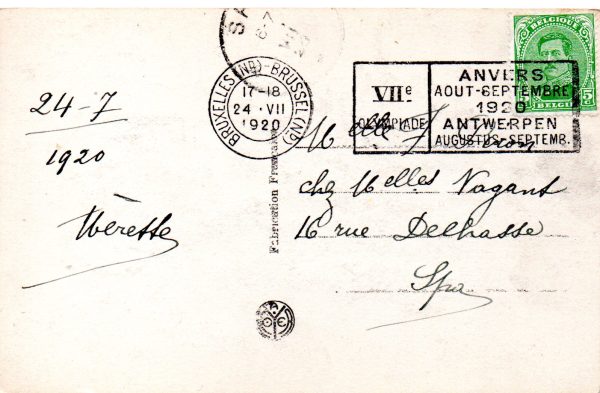 BELGIQUE
5 5
BELGIË
BRUXELLES (ND)-BRUSSEL (ND)
17-18
24 · VII
1920
VIIe
OLYMPIADE
ANVERS
AOUT-SEPTEMBRE
1920
ANTWERPEN
AUGUSTUS-SEPTEMB.
24-7
1920
Fabrication Française
Melle
chez Melles Nagant
16 rue Delhasse
Spa